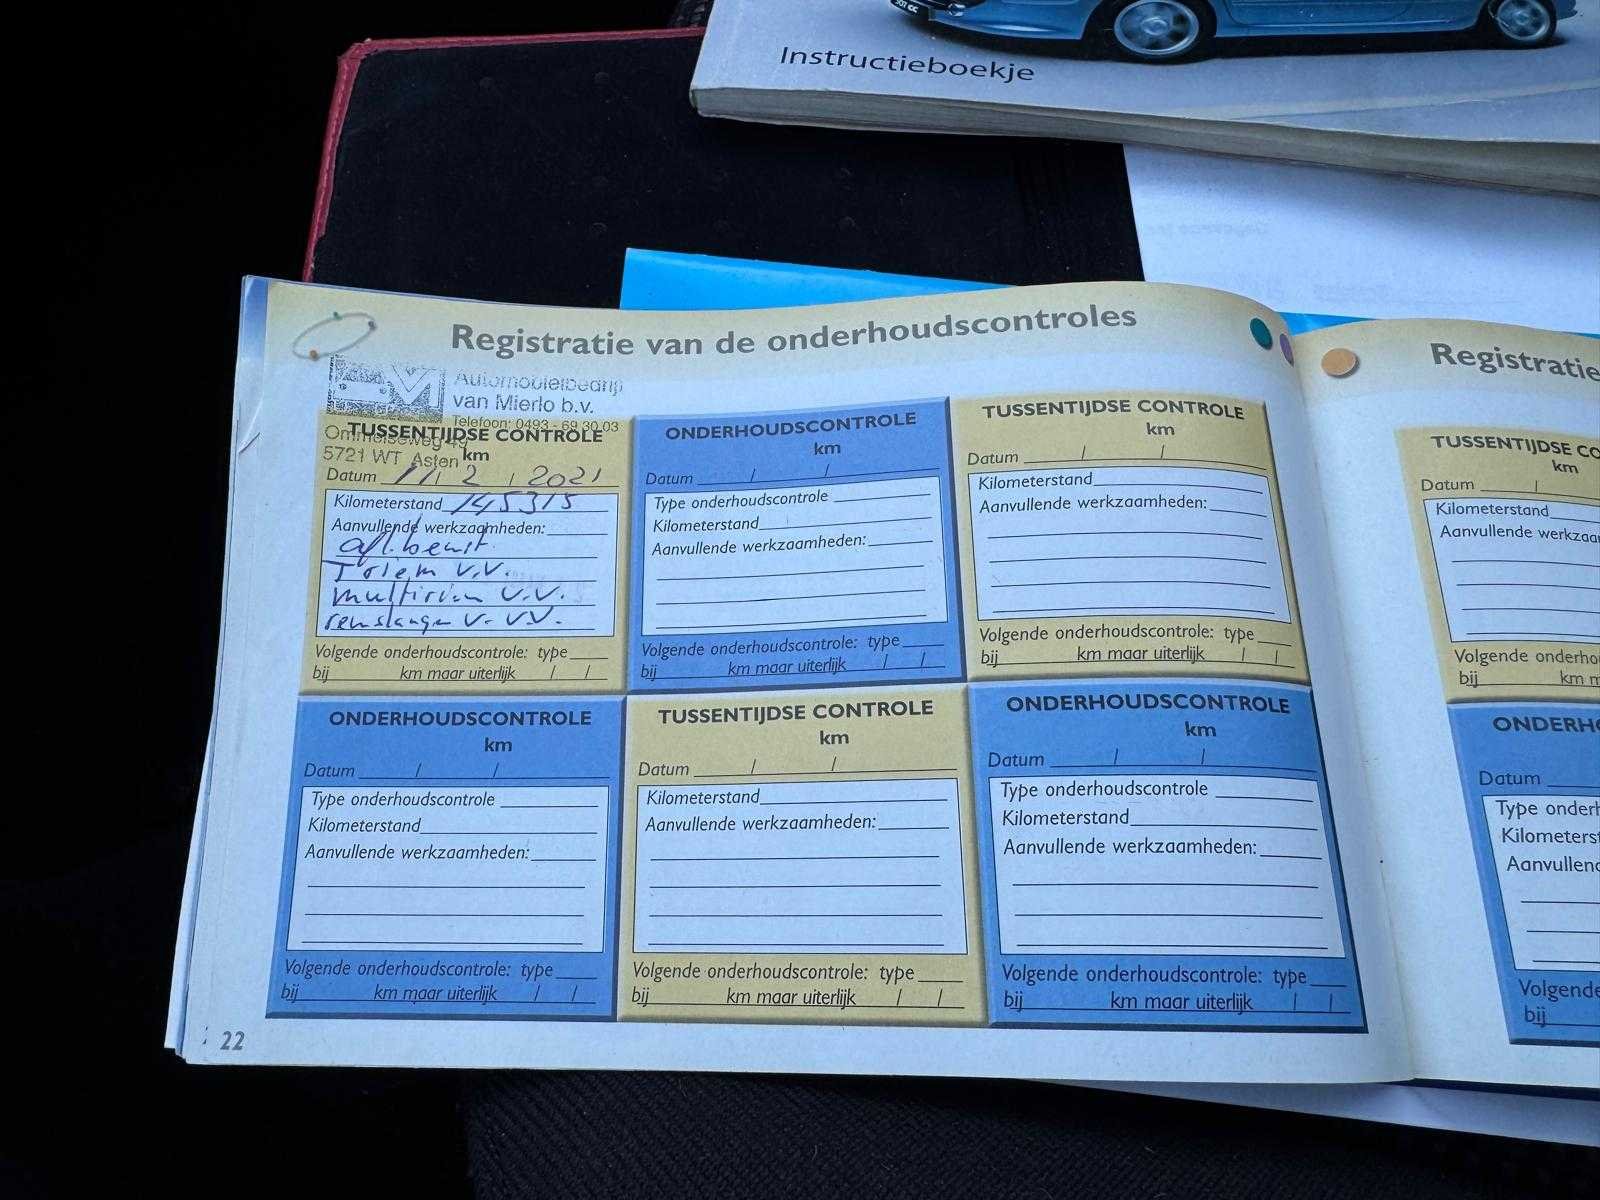 307 CC
Instructieboekje
Registratie van de onderhoudscontroles
Automobielbedrijf
van Mierlo b.v.
Telefoon: 0493 - 69 30 03
Ommelseweg 49
5721 WT Asten
TUSSENTIJDSE CONTROLE
km
Datum 11 / 2 / 2021
Kilometerstand 145315
Aanvullende werkzaamheden:
T riem v.v.
multiriem v.v.
remslangen v. v.v.
Volgende onderhoudscontrole: type
bij km maar uiterlijk / /
ONDERHOUDSCONTROLE
km
Datum / /
Type onderhoudscontrole
Kilometerstand
Aanvullende werkzaamheden:
Volgende onderhoudscontrole: type
bij km maar uiterlijk / /
TUSSENTIJDSE CONTROLE
km
Datum / /
Kilometerstand
Aanvullende werkzaamheden:
Volgende onderhoudscontrole: type
bij km maar uiterlijk / /
ONDERHOUDSCONTROLE
km
Datum / /
Type onderhoudscontrole
Kilometerstand
Aanvullende werkzaamheden:
Volgende onderhoudscontrole: type
bij km maar uiterlijk / /
TUSSENTIJDSE CONTROLE
km
Datum / /
Kilometerstand
Aanvullende werkzaamheden:
Volgende onderhoudscontrole: type
bij km maar uiterlijk / /
ONDERHOUDSCONTROLE
km
Datum / /
Type onderhoudscontrole
Kilometerstand
Aanvullende werkzaamheden:
Volgende onderhoudscontrole: type
bij km maar uiterlijk / /
22
Registratie
TUSSENTIJDSE CO
km
Datum /
Kilometerstand
Aanvullende werkzaa
Volgende onderho
bij km m
ONDERH
Datum
Type onderh
Kilometerst
Aanvullend
Volgende
bij